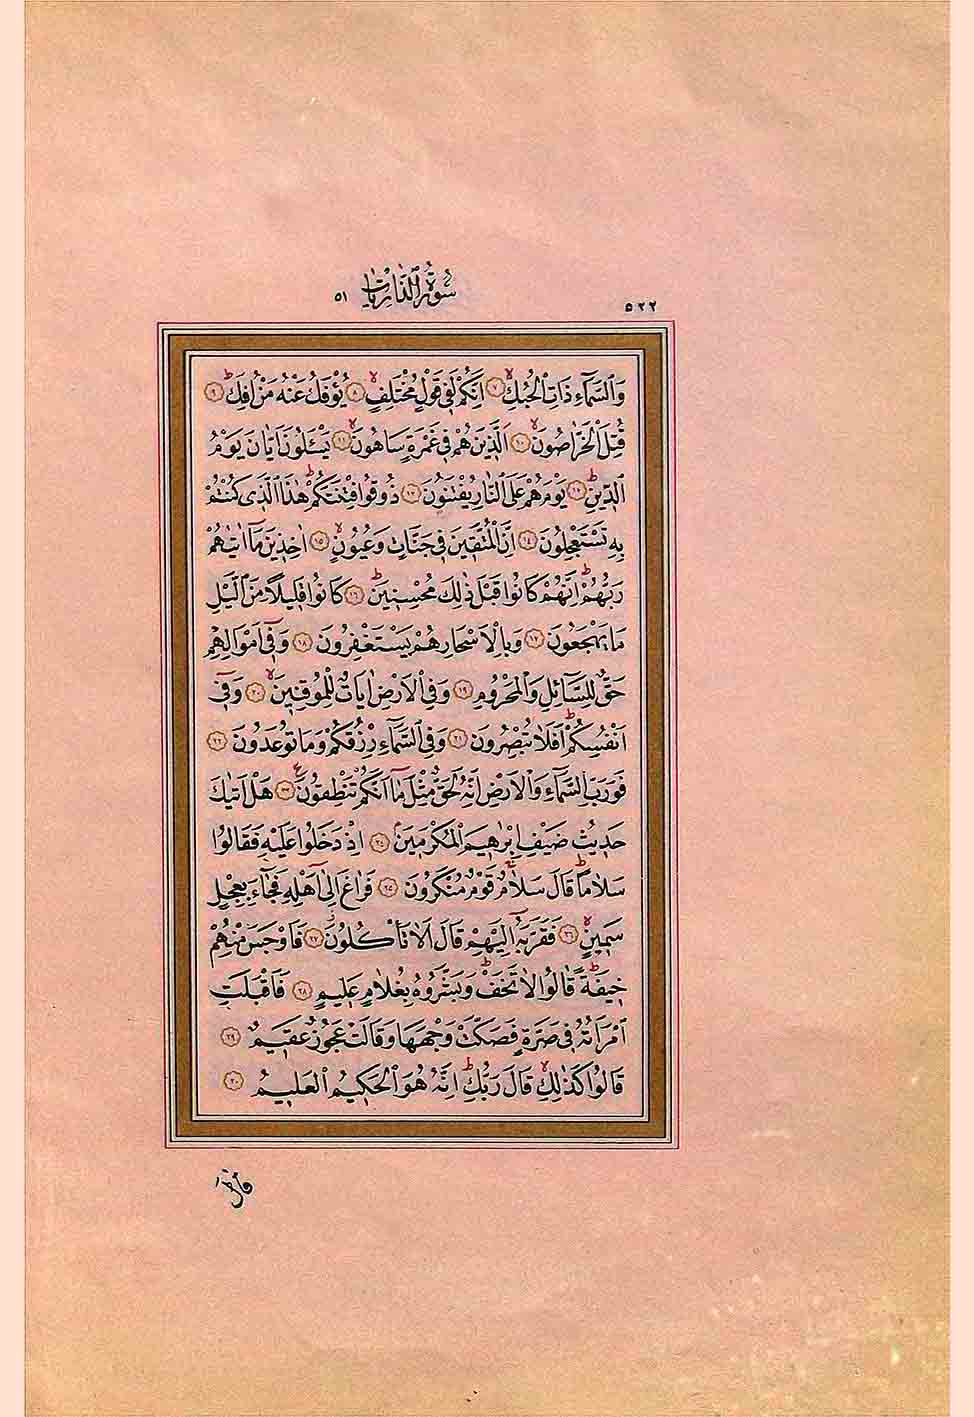 ٥٢٢
سُورَةُ الذَّارِيَاتِ ٥١
وَالسَّمَٓاءِ ذَاتِ الْحُبُكِۙ ﴿٧﴾ اِنَّكُمْ لَفٖى قَوْلٍ مُخْتَلِفٍۙ ﴿٨﴾ يُؤْفَكُ عَنْهُ مَنْ اُفِكَۜ ﴿٩﴾
قُتِلَ الْخَرَّاصُونَۙ ﴿١٠﴾ اَلَّذٖينَ هُمْ فٖى غَمْرَةٍ سَاهُونَۙ ﴿١١﴾ يَسْـَٔلُونَ اَيَّانَ يَوْمُ
الدّٖينِۜ ﴿١٢﴾ يَوْمَ هُمْ عَلَى النَّارِ يُفْتَنُونَ ﴿١٣﴾ ذُوقُوا فِتْنَتَكُمْۜ هٰذَا الَّذٖى كُنْتُمْ
بِهٖ تَسْتَعْجِلُونَ ﴿١٤﴾ اِنَّ الْمُتَّقٖينَ فٖى جَنَّاتٍ وَعُيُونٍۙ ﴿١٥﴾ اٰخِذٖينَ مَٓا اٰتٰيهُمْ
رَبُّهُمْۜ اِنَّهُمْ كَانُوا قَبْلَ ذٰلِكَ مُحْسِنٖينَۜ ﴿١٦﴾ كَانُوا قَلٖيلًا مِنَ الَّيْلِ
مَا يَهْجَعُونَ ﴿١٧﴾ وَبِالْاَسْحَارِ هُمْ يَسْتَغْفِرُونَ ﴿١٨﴾ وَفٖٓى اَمْوَالِهِمْ
حَقٌّ لِلسَّٓائِلِ وَالْمَحْرُومِ ﴿١٩﴾ وَفِى الْاَرْضِ اٰيَاتٌ لِلْمُوقِنٖينَۙ ﴿٢٠﴾ وَفٖٓى
اَنْفُسِكُمْۜ اَفَلَا تُبْصِرُونَ ﴿٢١﴾ وَفِى السَّمَٓاءِ رِزْقُكُمْ وَمَا تُوعَدُونَ ﴿٢٢﴾
فَوَرَبِّ السَّمَٓاءِ وَالْاَرْضِ اِنَّهُ لَحَقٌّ مِثْلَ مَٓا اَنَّكُمْ تَنْطِقُونَࣖ ﴿٢٣﴾ هَلْ اَتٰيكَ
حَدٖيثُ ضَيْفِ اِبْرٰهٖيمَ الْمُكْرَمٖينَۢ ﴿٢٤﴾ اِذْ دَخَلُوا عَلَيْهِ فَقَالُوا
سَلَامًاۜ قَالَ سَلَامٌۚ قَوْمٌ مُنْكَرُونَ ﴿٢٥﴾ فَرَاغَ اِلٰٓى اَهْلِهٖ فَجَٓاءَ بِعِجْلٍ
سَمٖينٍۙ ﴿٢٦﴾ فَقَرَّبَهُٓ اِلَيْهِمْ قَالَ اَلَا تَأْكُلُونَؗ ﴿٢٧﴾ فَاَوْجَسَ مِنْهُمْ
خٖيفَةًۜ قَالُوا لَا تَخَفْۜ وَبَشَّرُوهُ بِغُلَامٍ عَلٖيمٍ ﴿٢٨﴾ فَاَقْبَلَتِ
امْرَاَتُهُ فٖى صَرَّةٍ فَصَكَّتْ وَجْهَهَا وَقَالَتْ عَجُوزٌ عَقٖيمٌ ﴿٢٩﴾
قَالُوا كَذٰلِكِۙ قَالَ رَبُّكِۜ اِنَّهُ هُوَ الْحَكٖيمُ الْعَلٖيمُ ﴿٣٠﴾
قَالَ